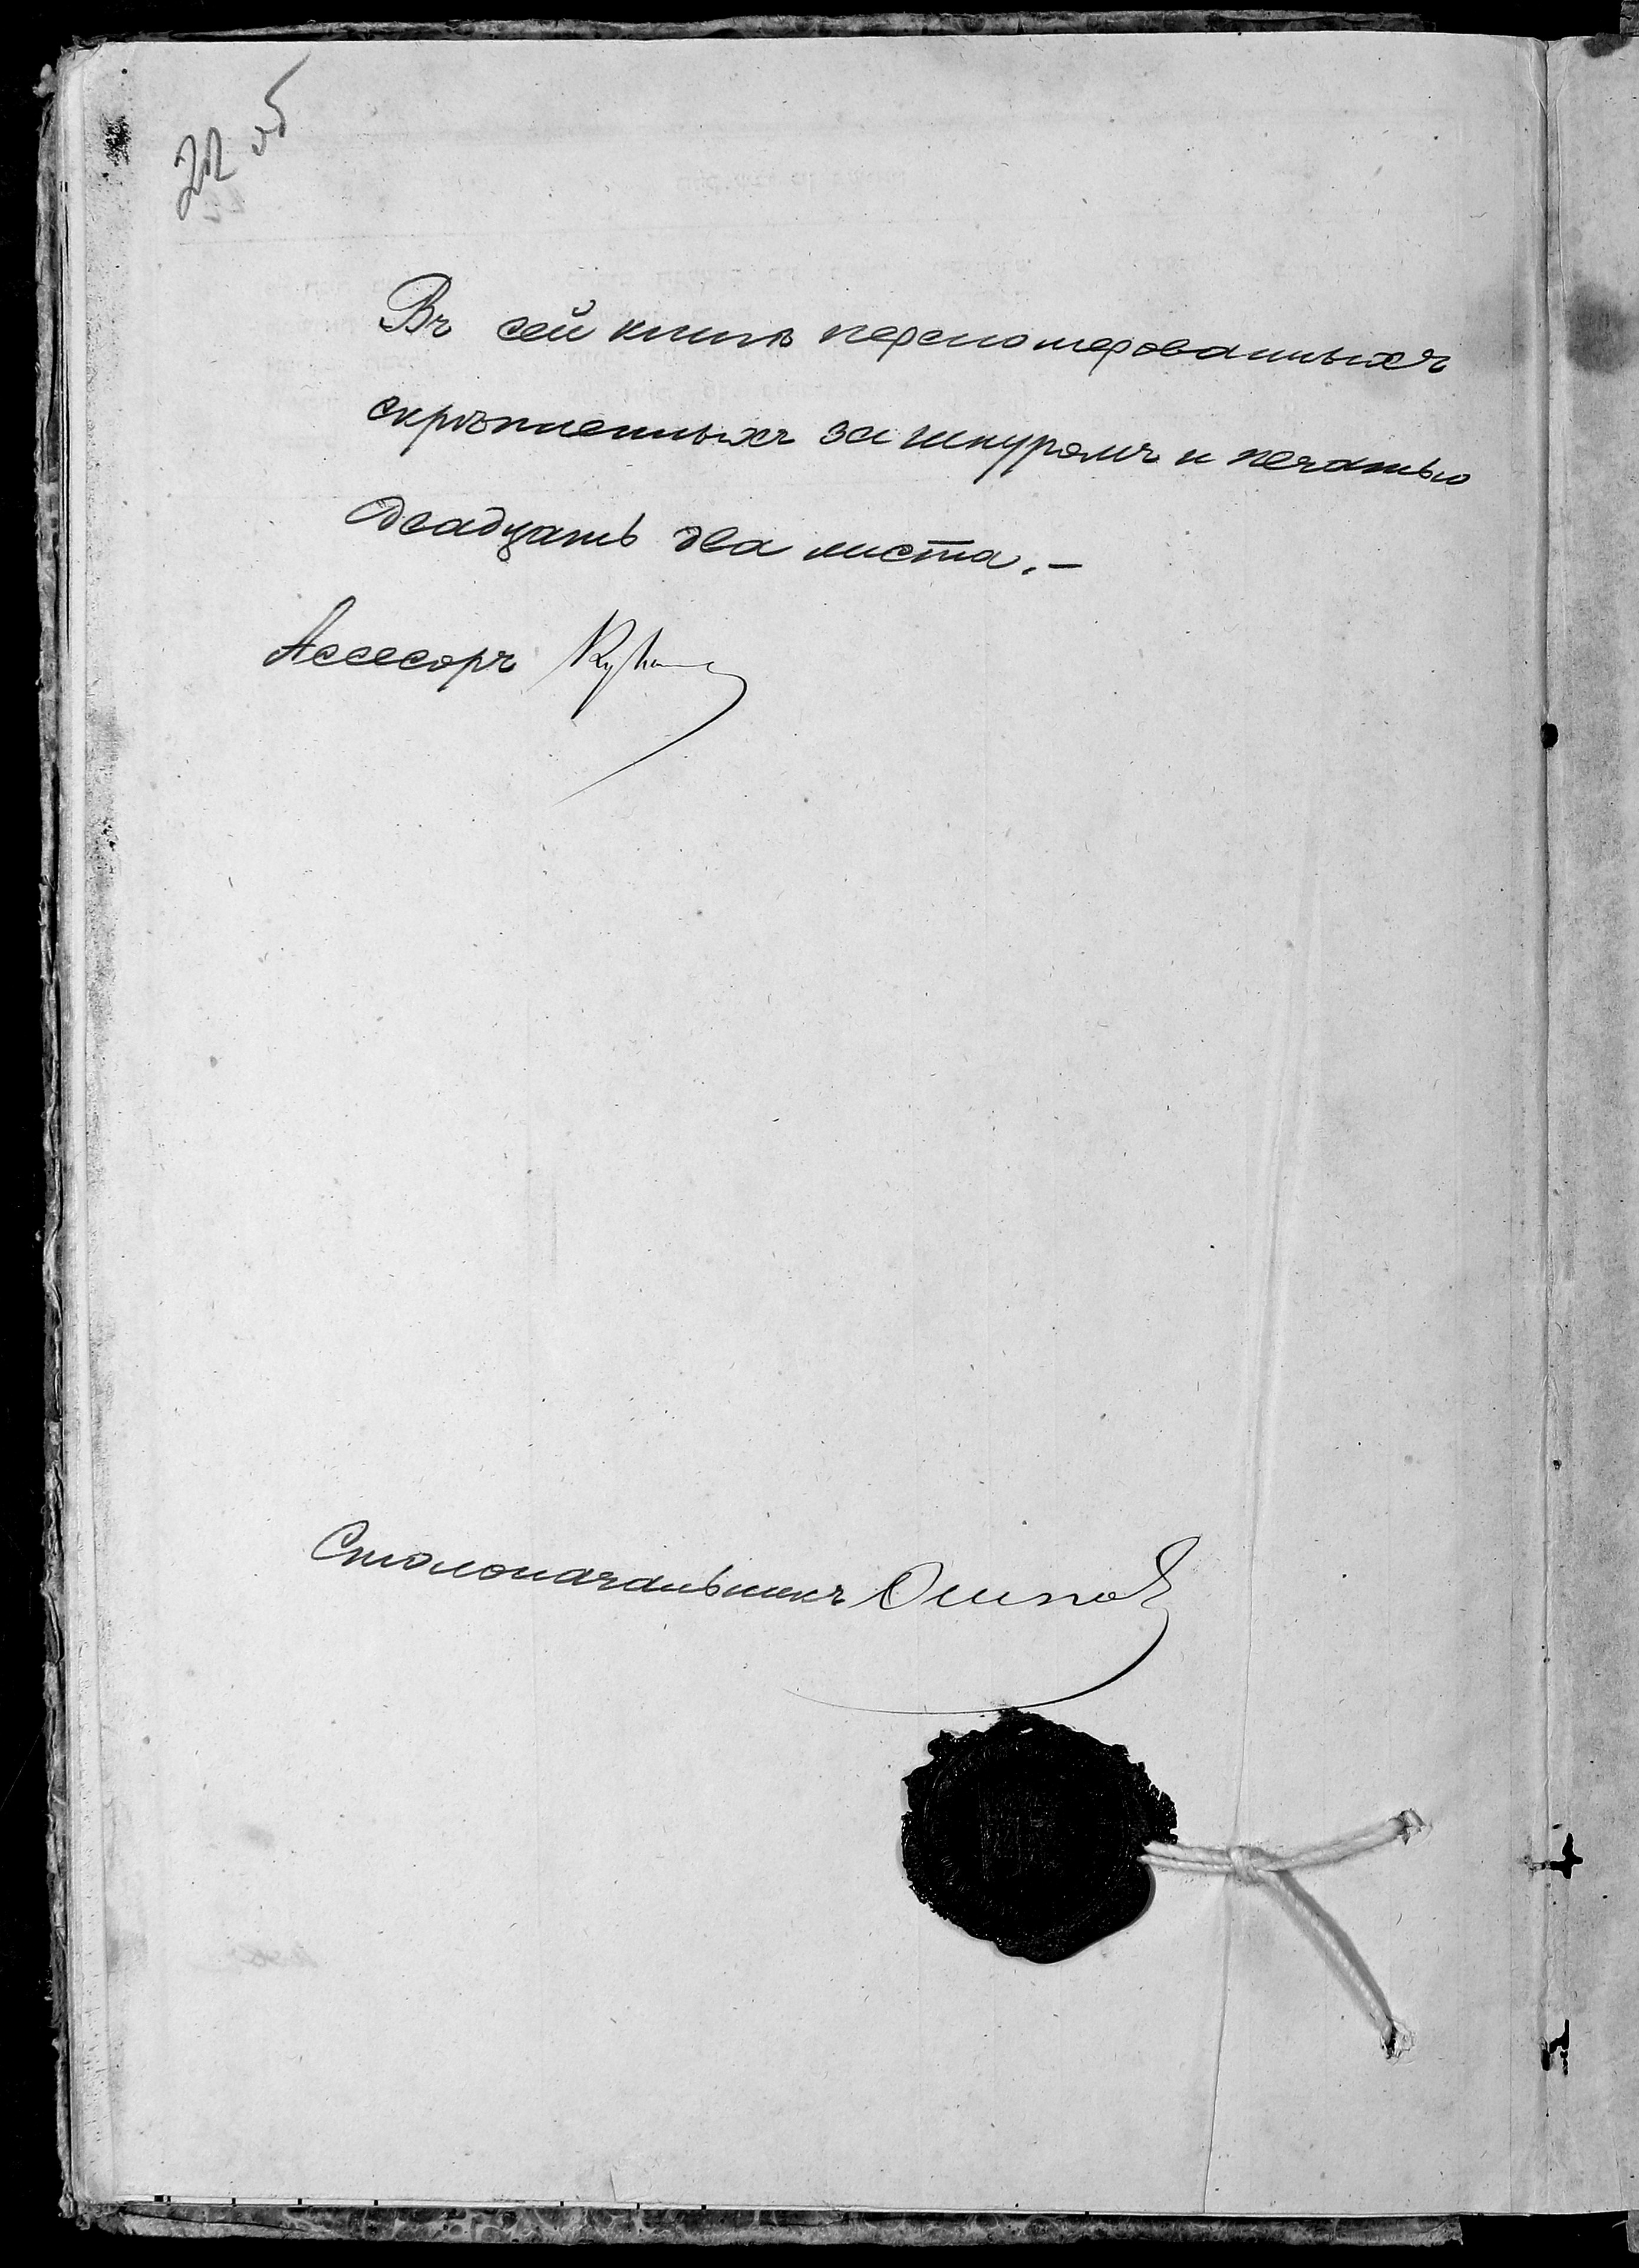 22 об
Въ сей книгѣ перенумерованныхъ
скрѣпленныхъ за шнуромъ и печатью
двадцать два листа. —
Асессоръ
Столоначальникъ Осипов